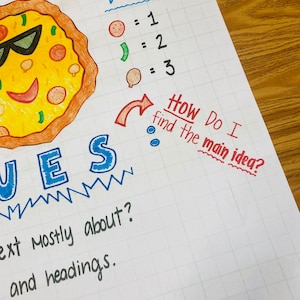 = 1
= 2
= 3
How Do I
find the main idea?
UES
ext mostly about?
and headings.